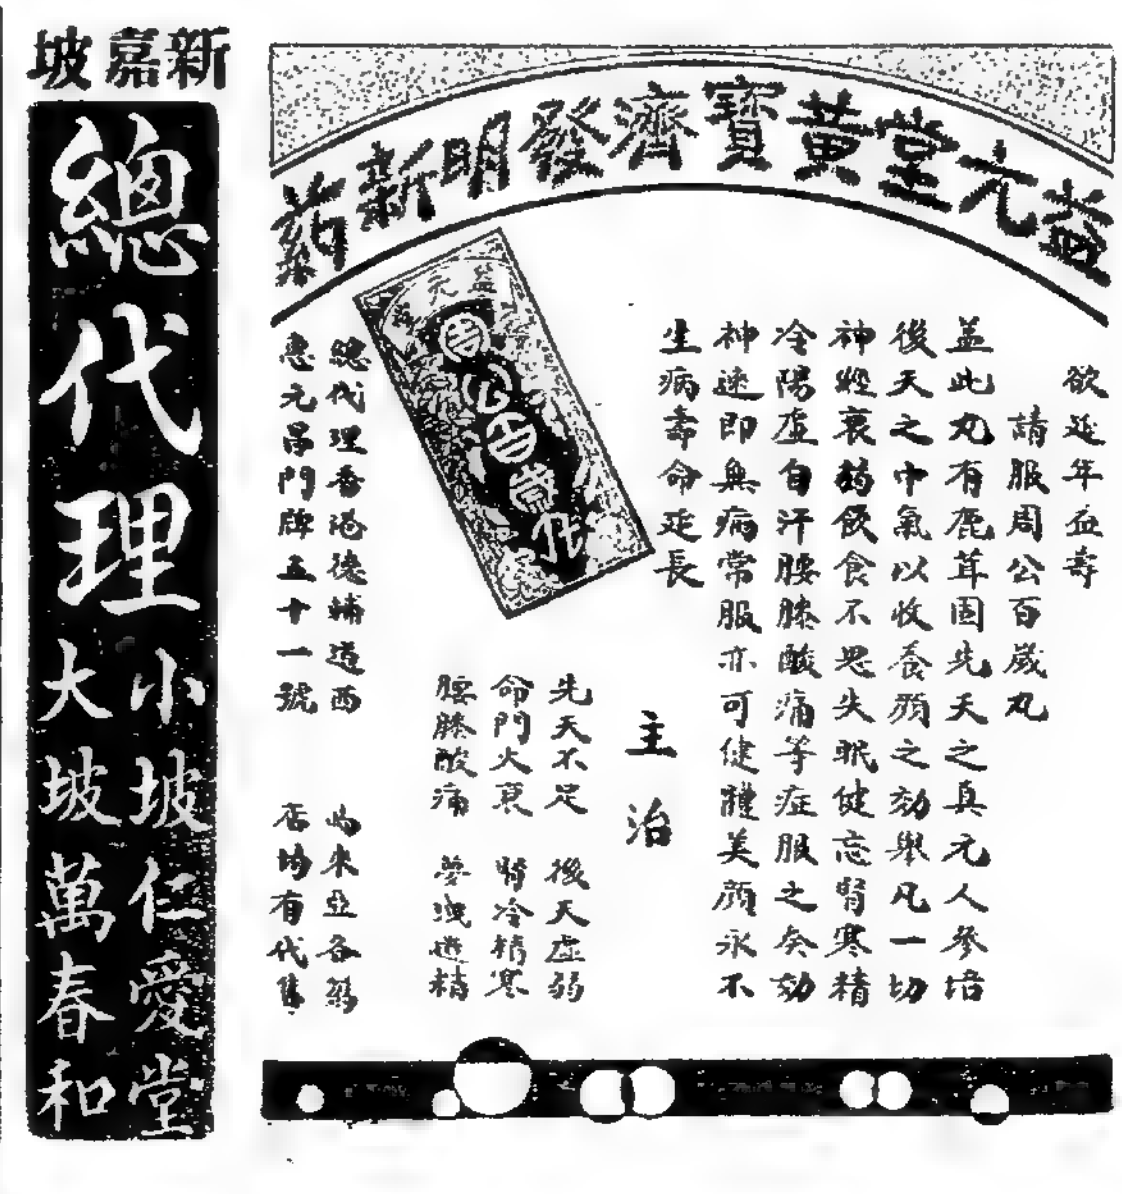 益元堂黃寶濟發明新药
欲延年益壽
請服周公百歲丸
盖此丸有鹿茸固先天之真元人參培
後天之中氣以收養顏之効舉凡一切
神經衰弱飲食不思失眠健忘腎寒精
冷陽虛自汗腰膝酸痛等症服之奏効
神速即無病常服亦可健體美顏永不
生病壽命延長
益元
周公百歲丸
主治
先天不足 後天虛弱
命門火衰 腎冷精寒
腰膝酸痛 夢洩遺精
總代理香港德輔道西
惠元昌門牌五十一號
馬來亞各藥
店均有代售
新嘉坡
總代理
小坡仁愛堂
大坡萬春和